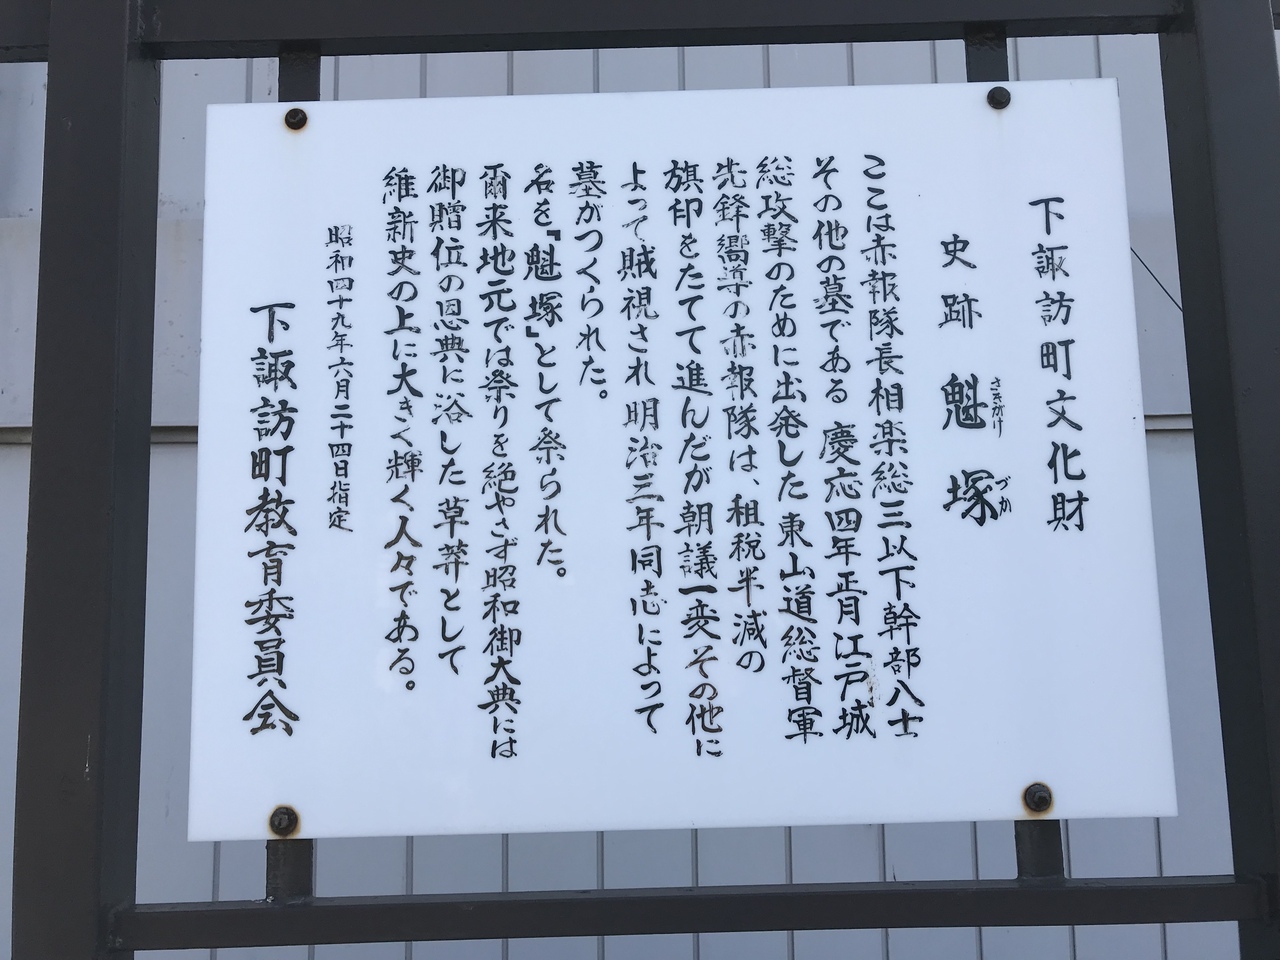 下諏訪町文化財
史跡 魁塚
さきがけ づか
ここは赤報隊長相楽総三以下幹部八士
その他の墓である 慶応四年正月江戸城
総攻撃のために出発した東山道総督軍
先鋒嚮導の赤報隊は、租税半減の
旗印をたてて進んだが朝議一変その他に
よって賊視され明治三年同志によって
墓がつくられた。
名を「魁塚」として祭られた。
爾来地元では祭りを絶やさず昭和御大典には
御贈位の恩典に浴した草莽として
維新史の上に大きく輝く人々である。
昭和四十九年六月二十四日指定
下諏訪町教育委員会